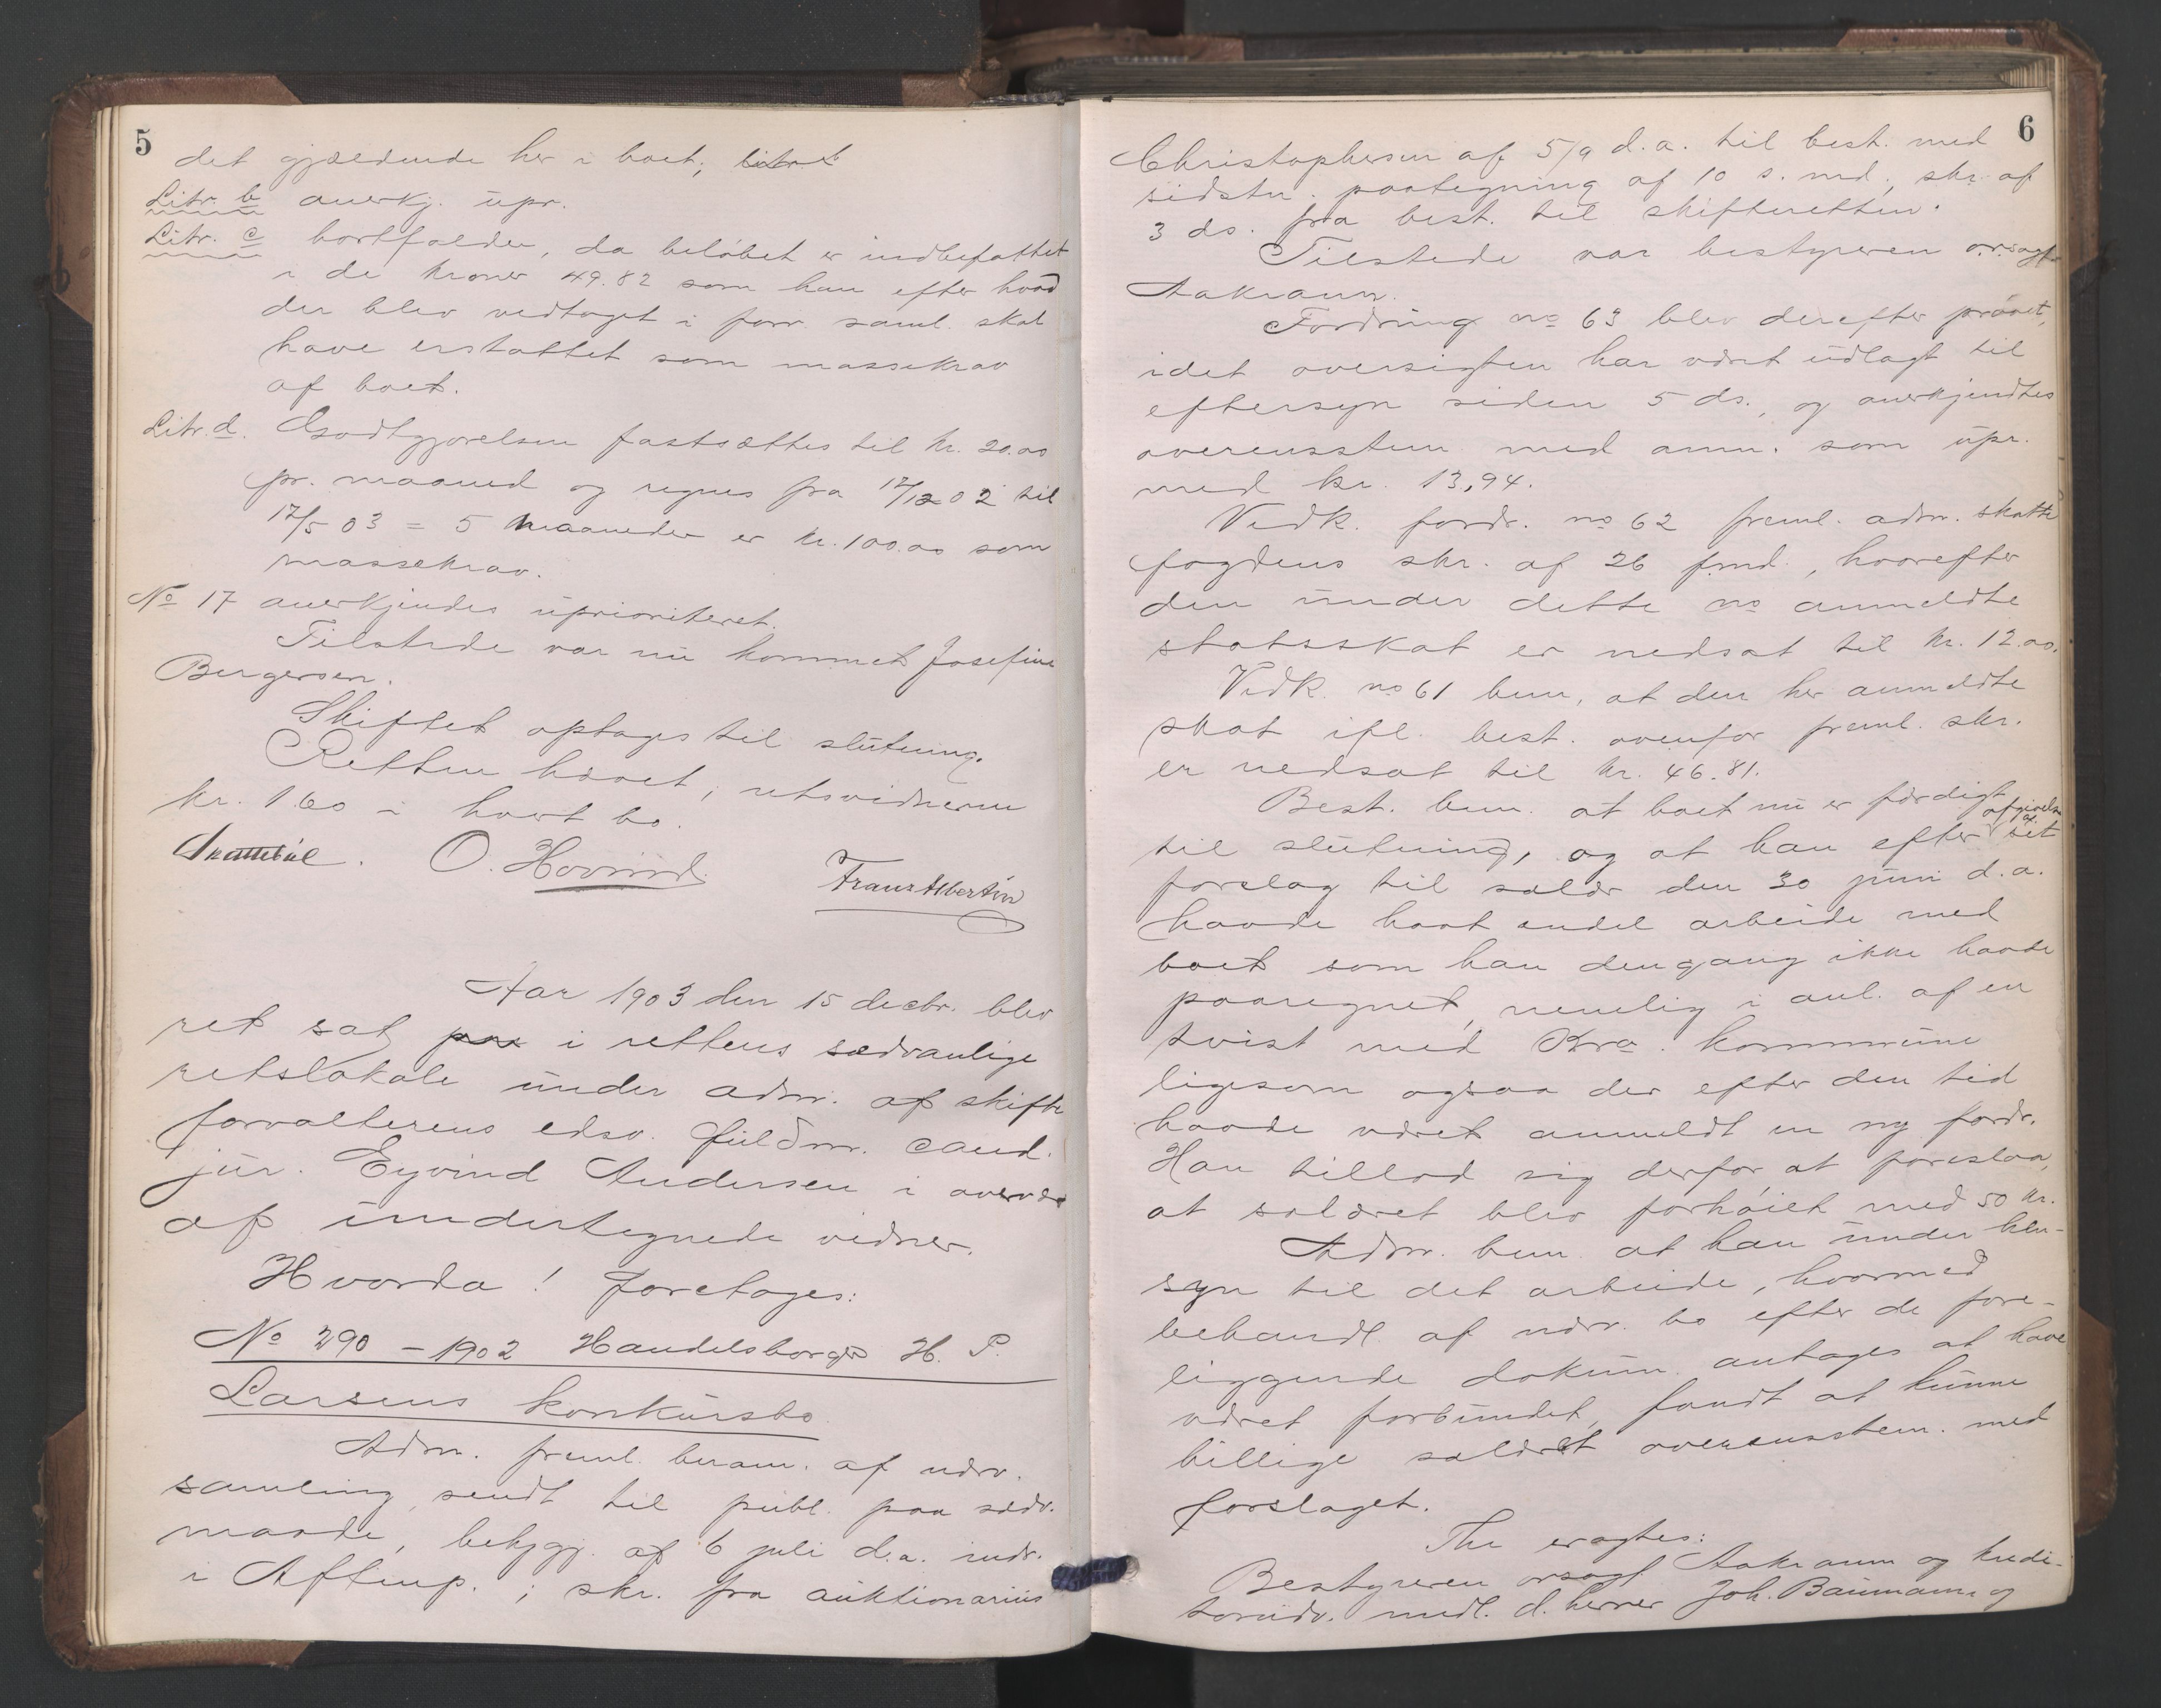 5
det gjældende her i boet;
Litr. b anerkj. upr.
Litr. c bortfalder, da beløbet er indbefattet
i de kroner 49.82 som han efter hvad
der blev vedtaget i forr. saml. skal
have erstattet som massekrav
af boet.
Litr. d. Godtgjørelsen fastsættes til kr. 20.00
pr. maaned og regnes fra 17/12 02 til
17/5 03 = 5 maaneder er kr. 100.00 som
massekrav.
No 17 anerkjendes uprioriteret.
Tilstede var nu kommet Josefine
Bergersen.
Skiftet optages til slutning.
Retten hævet, retsvidnerne
kr. 1.60 i hvert bo.
O. Hovind. Franz Albertin
Aar 1903 den 15 decbr. blev
ret sat paa i rettens sædvanlige
retslokale under adm. af skifte
forvalterens edsv. fuldm. cand.
jur. Eyvind Andersen i overvær
af undertegnede vidner.
Hvorda! foretages:
No 290 – 1902 Handelsborger H. P.
Larsens konkursbo
Adm. freml. beram. af nærv.
samling, sendt til publ. paa sædv.
maade, bekjgj. af 6 juli d.a. indr.
i Aftenp.; skr. fra auktionarius
6
Christophersen af 5/9 d.a. til best. med
sidstn. paategning af 10 s. md., skr. af
3 ds. fra best. til skifteretten.
Tilstede var bestyreren o.r.sagf.
Aakrann.
Fordring no 63 blev derefter prøvet,
idet oversigten har været udlagt til
eftersyn siden 5 ds., og anerkjendtes
overensstem. med anm. som upr.
med kr. 13,94.
Vedk. fordr. no 62 freml. adm. skatte
fogdens skr. af 26 f.md., hvorefter
den under dette no anmeldte
statsskat er nedsat til kr. 12.00.
Vedk. no 61 bem. at den her anmeldte
skat ifl. best. ovenfor freml. skr.
er nedsat til kr. 46.81.
Best. bem. at boet nu er færdigt
til slutning, og at han efter afgivelse af sit
forslag til salær den 30 juni d.a.
havde havt endel arbeide med
boet som han dengang ikke havde
paaregnet, nemlig i anl. af en
tvist med Kra. kommune
ligesom ogsaa der efter den tid
havde været anmeldt en ny fordr.
Han tillod sig derfor at foreslaa,
at salæret blev forhøiet med 50 kr.
Adm. bem. at han under hen-
syn til det arbeide, hvormed
behandl. af nærv. bo efter de fore-
liggende dokum. antages at have
været forbundet, fandt at kunne
billige salæret overensstem. med
forslaget.
Thi eragtes:
Bestyreren orsagf. Aakrann og kredi-
torudv. medl. d.herrer Joh. Baumann og